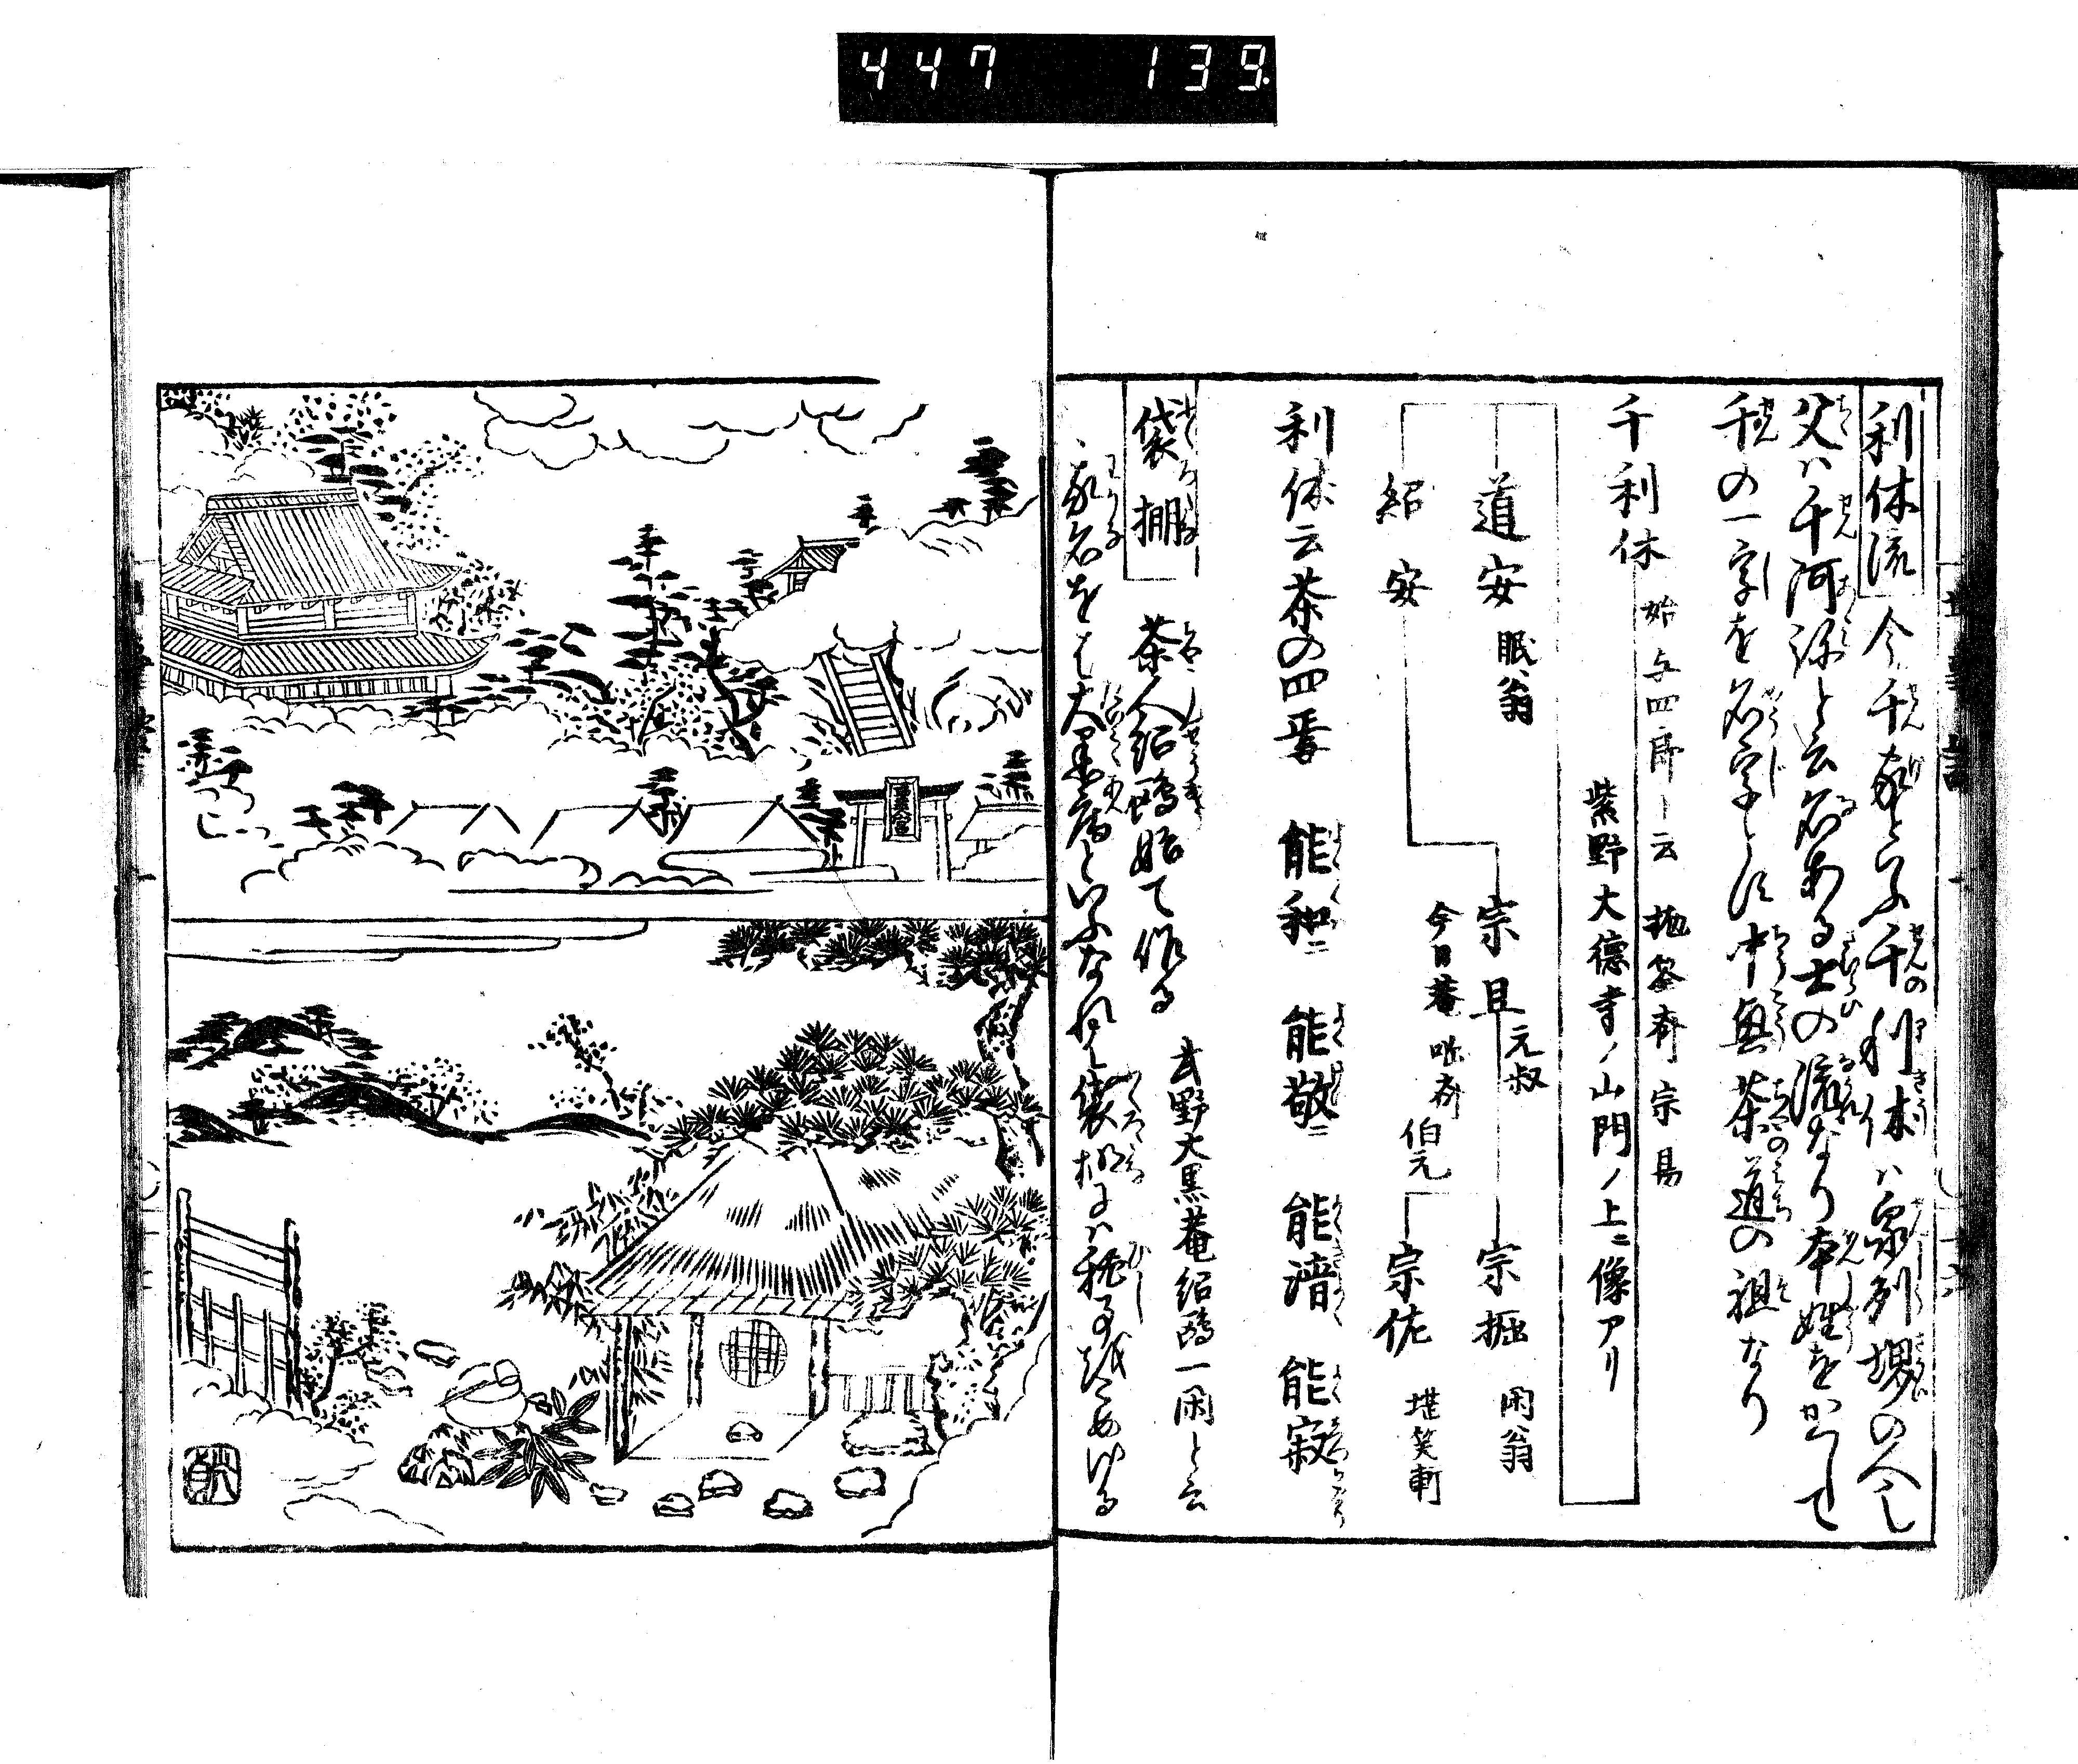 447 139
利休流 今千家といふ千利休ハ泉州堺の人にし
父ハ千阿弥と云名ある士の流なり本姓をかへて
千の一字を名字とす中興茶道の祖なり
千利休 始与四郎ト云 抛筌斎宗易
紫野大徳寺ノ山門ノ上ニ像アリ
道安 眠翁
紹安
宗旦 元叔
今日菴 咄斎
伯元
宗拙 閑翁
宗佐 堪笑軒
利休云茶の四誓 能和ニ 能敬ニ 能清 能寂
袋棚 茶人紹鴎始て作る 武野大黒菴紹鴎一閑と云
我名をば大黒庵といふなれば袋棚にハ秘事ぞこめける